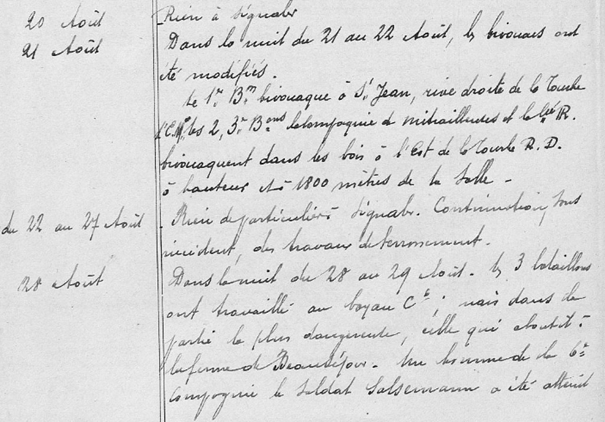 20 Août Rien à signaler
21 Août Dans la nuit du 21 au 22 Août, les bivouacs ont
été modifiés.
Le 1er Bon bivouaque à St Jean, rive droite de la Tourbe
les 2, 3e Bons la compagnie de mitrailleuses et la Cie H.R.
bivouaquent dans les bois à l'Est de la Tourbe R.D.
à hauteur et à 1800 mètres de la Salle -
du 22 au 27 Août Rien de particulier à signaler. Continuation, sans
incident, des travaux de terrassement.
28 Août Dans la nuit du 28 au 29 Août. les 3 bataillons
ont travaillé au boyau C ; mais dans la
partie la plus dangereuse, celle qui aboutit à
la ferme de Beauséjour. Un homme de la 6e
Compagnie le soldat Salsemann a été atteint